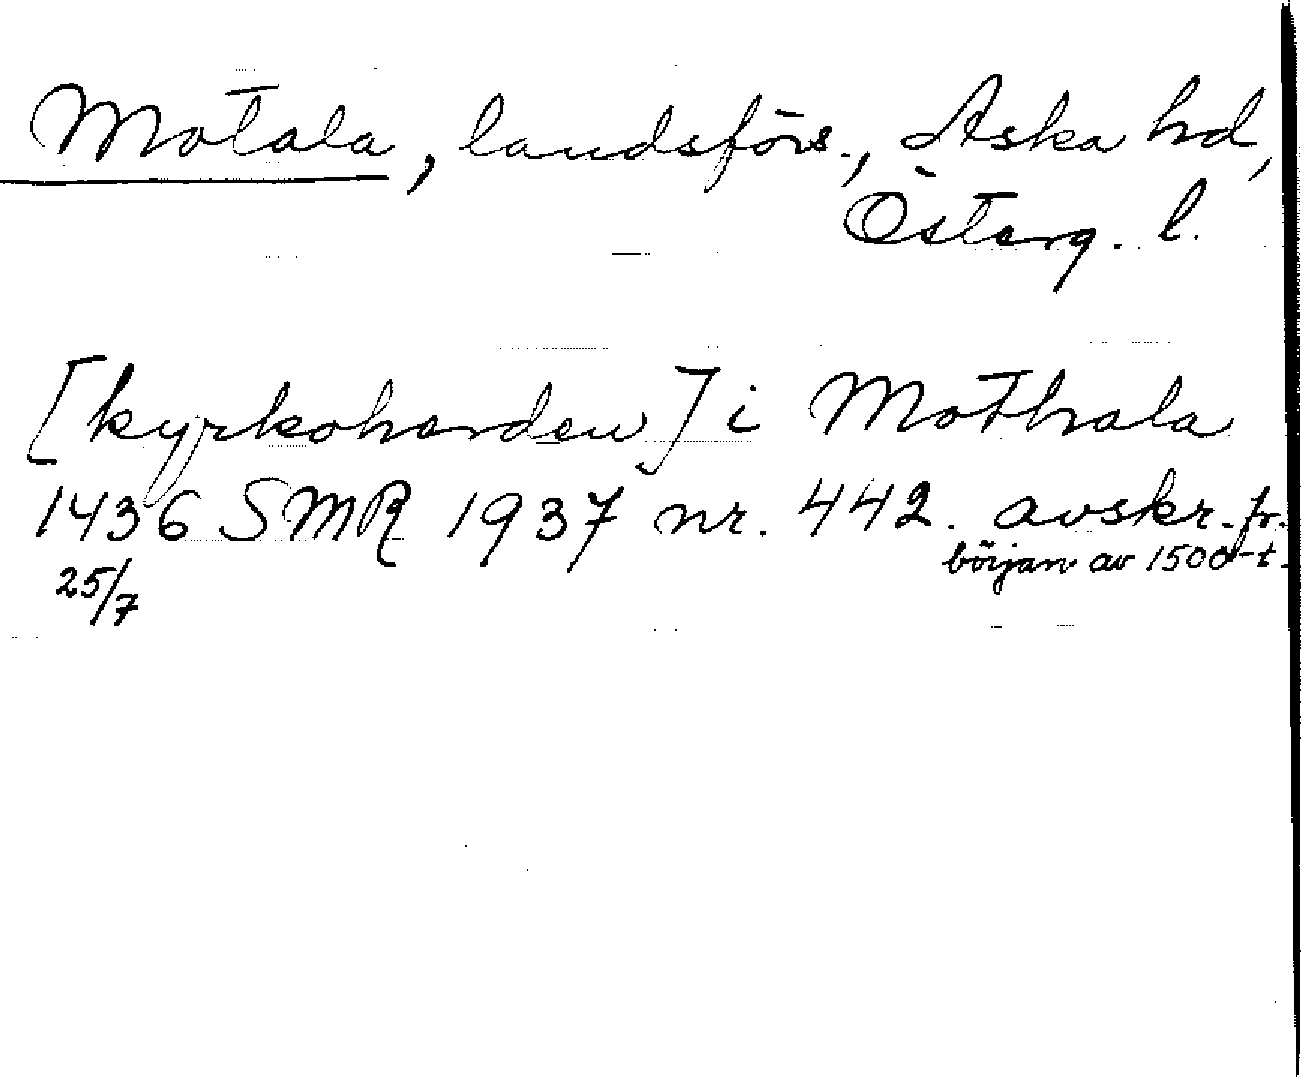 Motala, landsförs., Aska hd,
Österg. l.
[kyrkoherden] i Mothala
1436 SMR 1937 nr. 442. avskr. fr.
25/7 början av 1500-t.